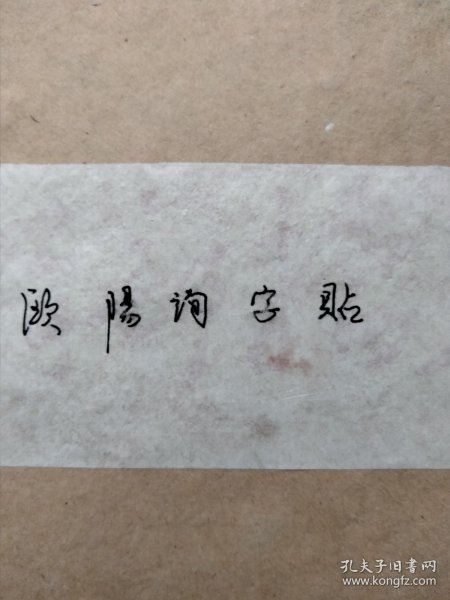 歐陽詢字貼
孔夫子旧书网
www.kongfz.com